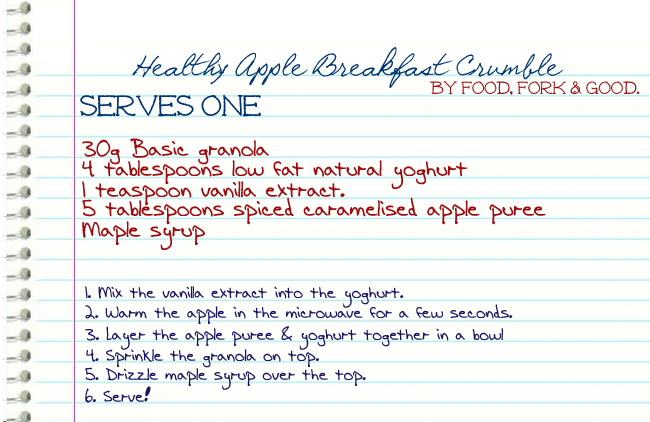 Healthy Apple Breakfast Crumble
BY FOOD, FORK & GOOD.
SERVES ONE
30g Basic granola
4 tablespoons low fat natural yoghurt
1 teaspoon vanilla extract.
5 tablespoons spiced caramelised apple puree
Maple syrup
1. Mix the vanilla extract into the yoghurt.
2. Warm the apple in the microwave for a few seconds.
3. Layer the apple puree & yoghurt together in a bowl
4. Sprinkle the granola on top.
5. Drizzle maple syrup over the top.
6. Serve!